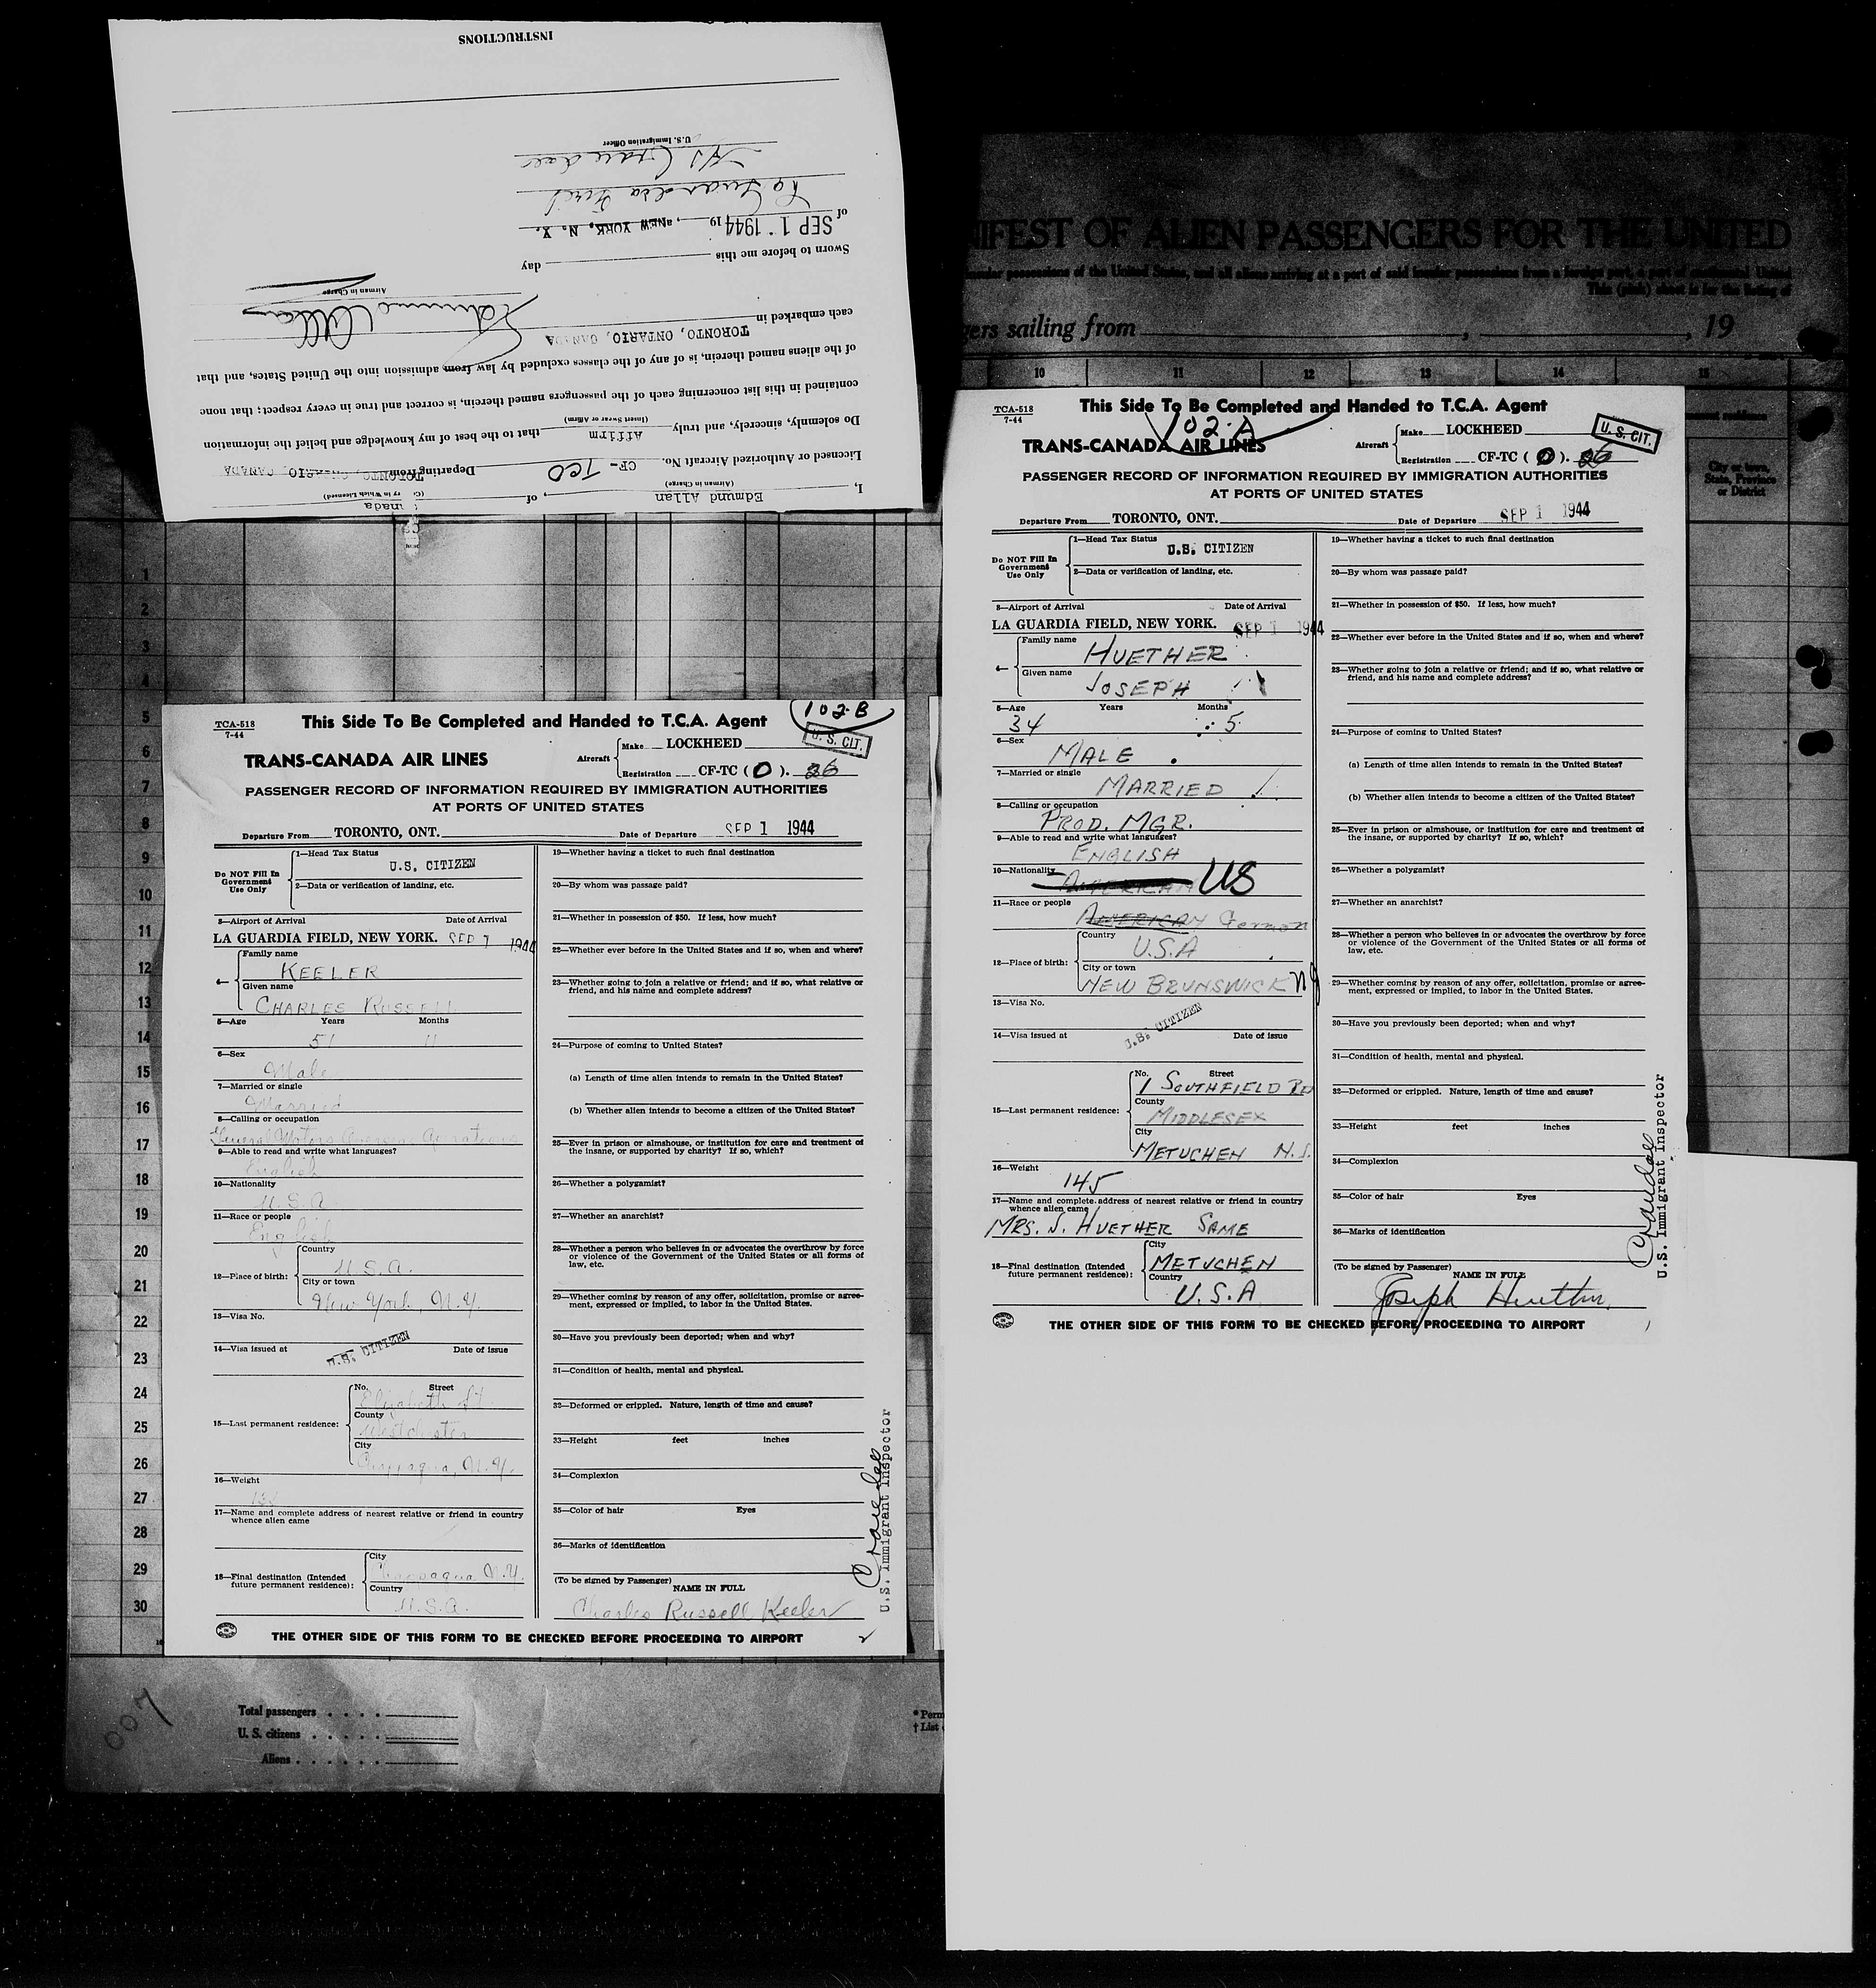 INSTRUCTIONS
I, Edmund Allan, of Canada
(Airman in Charge) (Country in Which Licensed)
Licensed or Authorized Aircraft No. CF-TCO Departing from TORONTO, ONTARIO, CANADA
Do solemnly, sincerely, and truly Affirm that to the best of my knowledge and belief the information
(Insert Swear or Affirm)
contained in this list concerning each of the passengers named therein, is correct and true in every respect; that none
of the aliens named therein, is of any of the classes excluded by law from admission into the United States, and that
each embarked in TORONTO, ONTARIO, CANADA
Edmund Allan
Airman in Charge
Sworn to before me this day
of SEP 1 - 1944 19 , at NEW YORK, N. Y.
La Guardia Field
HS Crandall
U.S. Immigration Officer
1
2
3
4
5
6
7
8
9
10
11
12
13
14
15
16
17
18
19
20
21
22
23
24
25
26
27
28
29
30
102-B
TCA-518
7-44
This Side To Be Completed and Handed to T.C.A. Agent
U. S. CIT.
TRANS-CANADA AIR LINES
Aircraft
Make LOCKHEED
Registration CF-TC ( O ). 26
PASSENGER RECORD OF INFORMATION REQUIRED BY IMMIGRATION AUTHORITIES
AT PORTS OF UNITED STATES
Departure From TORONTO, ONT. Date of Departure SEP 1 1944
Do NOT Fill In
Government
Use Only
1—Head Tax Status
U.S. CITIZEN
2—Data or verification of landing, etc.
3—Airport of Arrival Date of Arrival
LA GUARDIA FIELD, NEW YORK. SEP 1 1944
4—
Family name
KEELER
Given name
CHARLES RUSSELL
5—Age Years Months
51 11
6—Sex
Male
7—Married or single
Married
8—Calling or occupation
General Motors Overseas Operations
9—Able to read and write what languages?
English
10—Nationality
U.S.A.
11—Race or people
English
12—Place of birth:
Country
U.S.A.
City or town
New York, N.Y.
13—Visa No.
14—Visa issued at Date of issue
U.S. CITIZEN
15—Last permanent residence:
No. Street
Elizabeth St.
County
Westchester
City
Chappaqua, N.Y.
16—Weight
17—Name and complete address of nearest relative or friend in country
whence alien came
18—Final destination (Intended
future permanent residence):
City
Chappaqua N.Y.
Country
U.S.A.
19—Whether having a ticket to such final destination
20—By whom was passage paid?
21—Whether in possession of $50. If less, how much?
22—Whether ever before in the United States and if so, when and where?
23—Whether going to join a relative or friend; and if so, what relative or
friend, and his name and complete address?
24—Purpose of coming to United States?
(a) Length of time alien intends to remain in the United States?
(b) Whether alien intends to become a citizen of the United States?
25—Ever in prison or almshouse, or institution for care and treatment of
the insane, or supported by charity? If so, which?
26—Whether a polygamist?
27—Whether an anarchist?
28—Whether a person who believes in or advocates the overthrow by force
or violence of the Government of the United States or all forms of
law, etc.
29—Whether coming by reason of any offer, solicitation, promise or agree-
ment, expressed or implied, to labor in the United States.
30—Have you previously been deported; when and why?
31—Condition of health, mental and physical.
32—Deformed or crippled. Nature, length of time and cause?
33—Height feet inches
34—Complexion
35—Color of hair Eyes
36—Marks of identification
(To be signed by Passenger)
NAME IN FULL
Charles Russell Keeler
Crandall
U.S. Immigrant Inspector
THE OTHER SIDE OF THIS FORM TO BE CHECKED BEFORE PROCEEDING TO AIRPORT
007
Total passengers
U. S. citizens
Aliens
* Perm
† List
IFEST OF ALIEN PASSENGERS FOR THE UNITED
insular possessions of the United States, and all aliens arriving at a port of said insular possessions from a foreign port, a port of continental United
This (pink) sheet is for the listing of
gers sailing from , , 19
10 11 12 13 14 15
City or town,
State, Province
or District
TCA-518
7-44
This Side To Be Completed and Handed to T.C.A. Agent
102-A
U. S. CIT.
TRANS-CANADA AIR LINES
Aircraft
Make LOCKHEED
Registration CF-TC ( O ). 26
PASSENGER RECORD OF INFORMATION REQUIRED BY IMMIGRATION AUTHORITIES
AT PORTS OF UNITED STATES
Departure From TORONTO, ONT. Date of Departure SEP 1 1944
Do NOT Fill In
Government
Use Only
1—Head Tax Status
U.S. CITIZEN
2—Data or verification of landing, etc.
3—Airport of Arrival Date of Arrival
LA GUARDIA FIELD, NEW YORK. SEP 1 1944
4—
Family name
HUETHER
Given name
JOSEPH
5—Age Years Months
34 5
6—Sex
MALE
7—Married or single
MARRIED
8—Calling or occupation
PROD. MGR.
9—Able to read and write what languages?
ENGLISH
10—Nationality
AMERICAN US
11—Race or people
AMERICAN German
12—Place of birth:
Country
U.S.A
City or town
NEW BRUNSWICK NJ
13—Visa No.
14—Visa issued at Date of issue
U.S. CITIZEN
15—Last permanent residence:
No. Street
1 SOUTHFIELD RD
County
MIDDLESEX
City
METUCHEN N.J.
16—Weight
145
17—Name and complete address of nearest relative or friend in country
whence alien came
MRS. J. HUETHER SAME
18—Final destination (Intended
future permanent residence):
City
METUCHEN
Country
U.S.A
19—Whether having a ticket to such final destination
20—By whom was passage paid?
21—Whether in possession of $50. If less, how much?
22—Whether ever before in the United States and if so, when and where?
23—Whether going to join a relative or friend; and if so, what relative or
friend, and his name and complete address?
24—Purpose of coming to United States?
(a) Length of time alien intends to remain in the United States?
(b) Whether alien intends to become a citizen of the United States?
25—Ever in prison or almshouse, or institution for care and treatment of
the insane, or supported by charity? If so, which?
26—Whether a polygamist?
27—Whether an anarchist?
28—Whether a person who believes in or advocates the overthrow by force
or violence of the Government of the United States or all forms of
law, etc.
29—Whether coming by reason of any offer, solicitation, promise or agree-
ment, expressed or implied, to labor in the United States.
30—Have you previously been deported; when and why?
31—Condition of health, mental and physical.
32—Deformed or crippled. Nature, length of time and cause?
33—Height feet inches
34—Complexion
35—Color of hair Eyes
36—Marks of identification
(To be signed by Passenger)
NAME IN FULL
Joseph Huether
Crandall
U.S. Immigrant Inspector
THE OTHER SIDE OF THIS FORM TO BE CHECKED BEFORE PROCEEDING TO AIRPORT